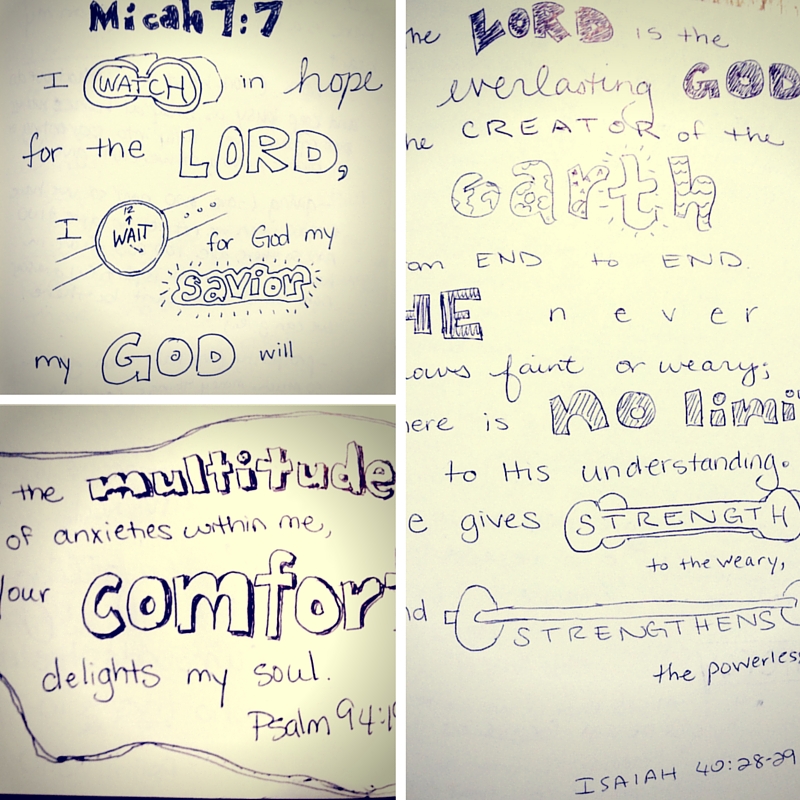 Micah 7:7
I WATCH in hope
for the LORD,
I WAIT for God my
12
savior
my GOD will
the multitude
of anxieties within me,
your comfort
delights my soul.
Psalm 94:19
he LORD is the
everlasting GOD
he CREATOR of the
earth
om END to END.
HE never
ows faint or weary;
ere is no limi
to His understanding.
e gives STRENGTH
to the weary,
nd STRENGTHENS
the powerless
ISAIAH 40:28-29